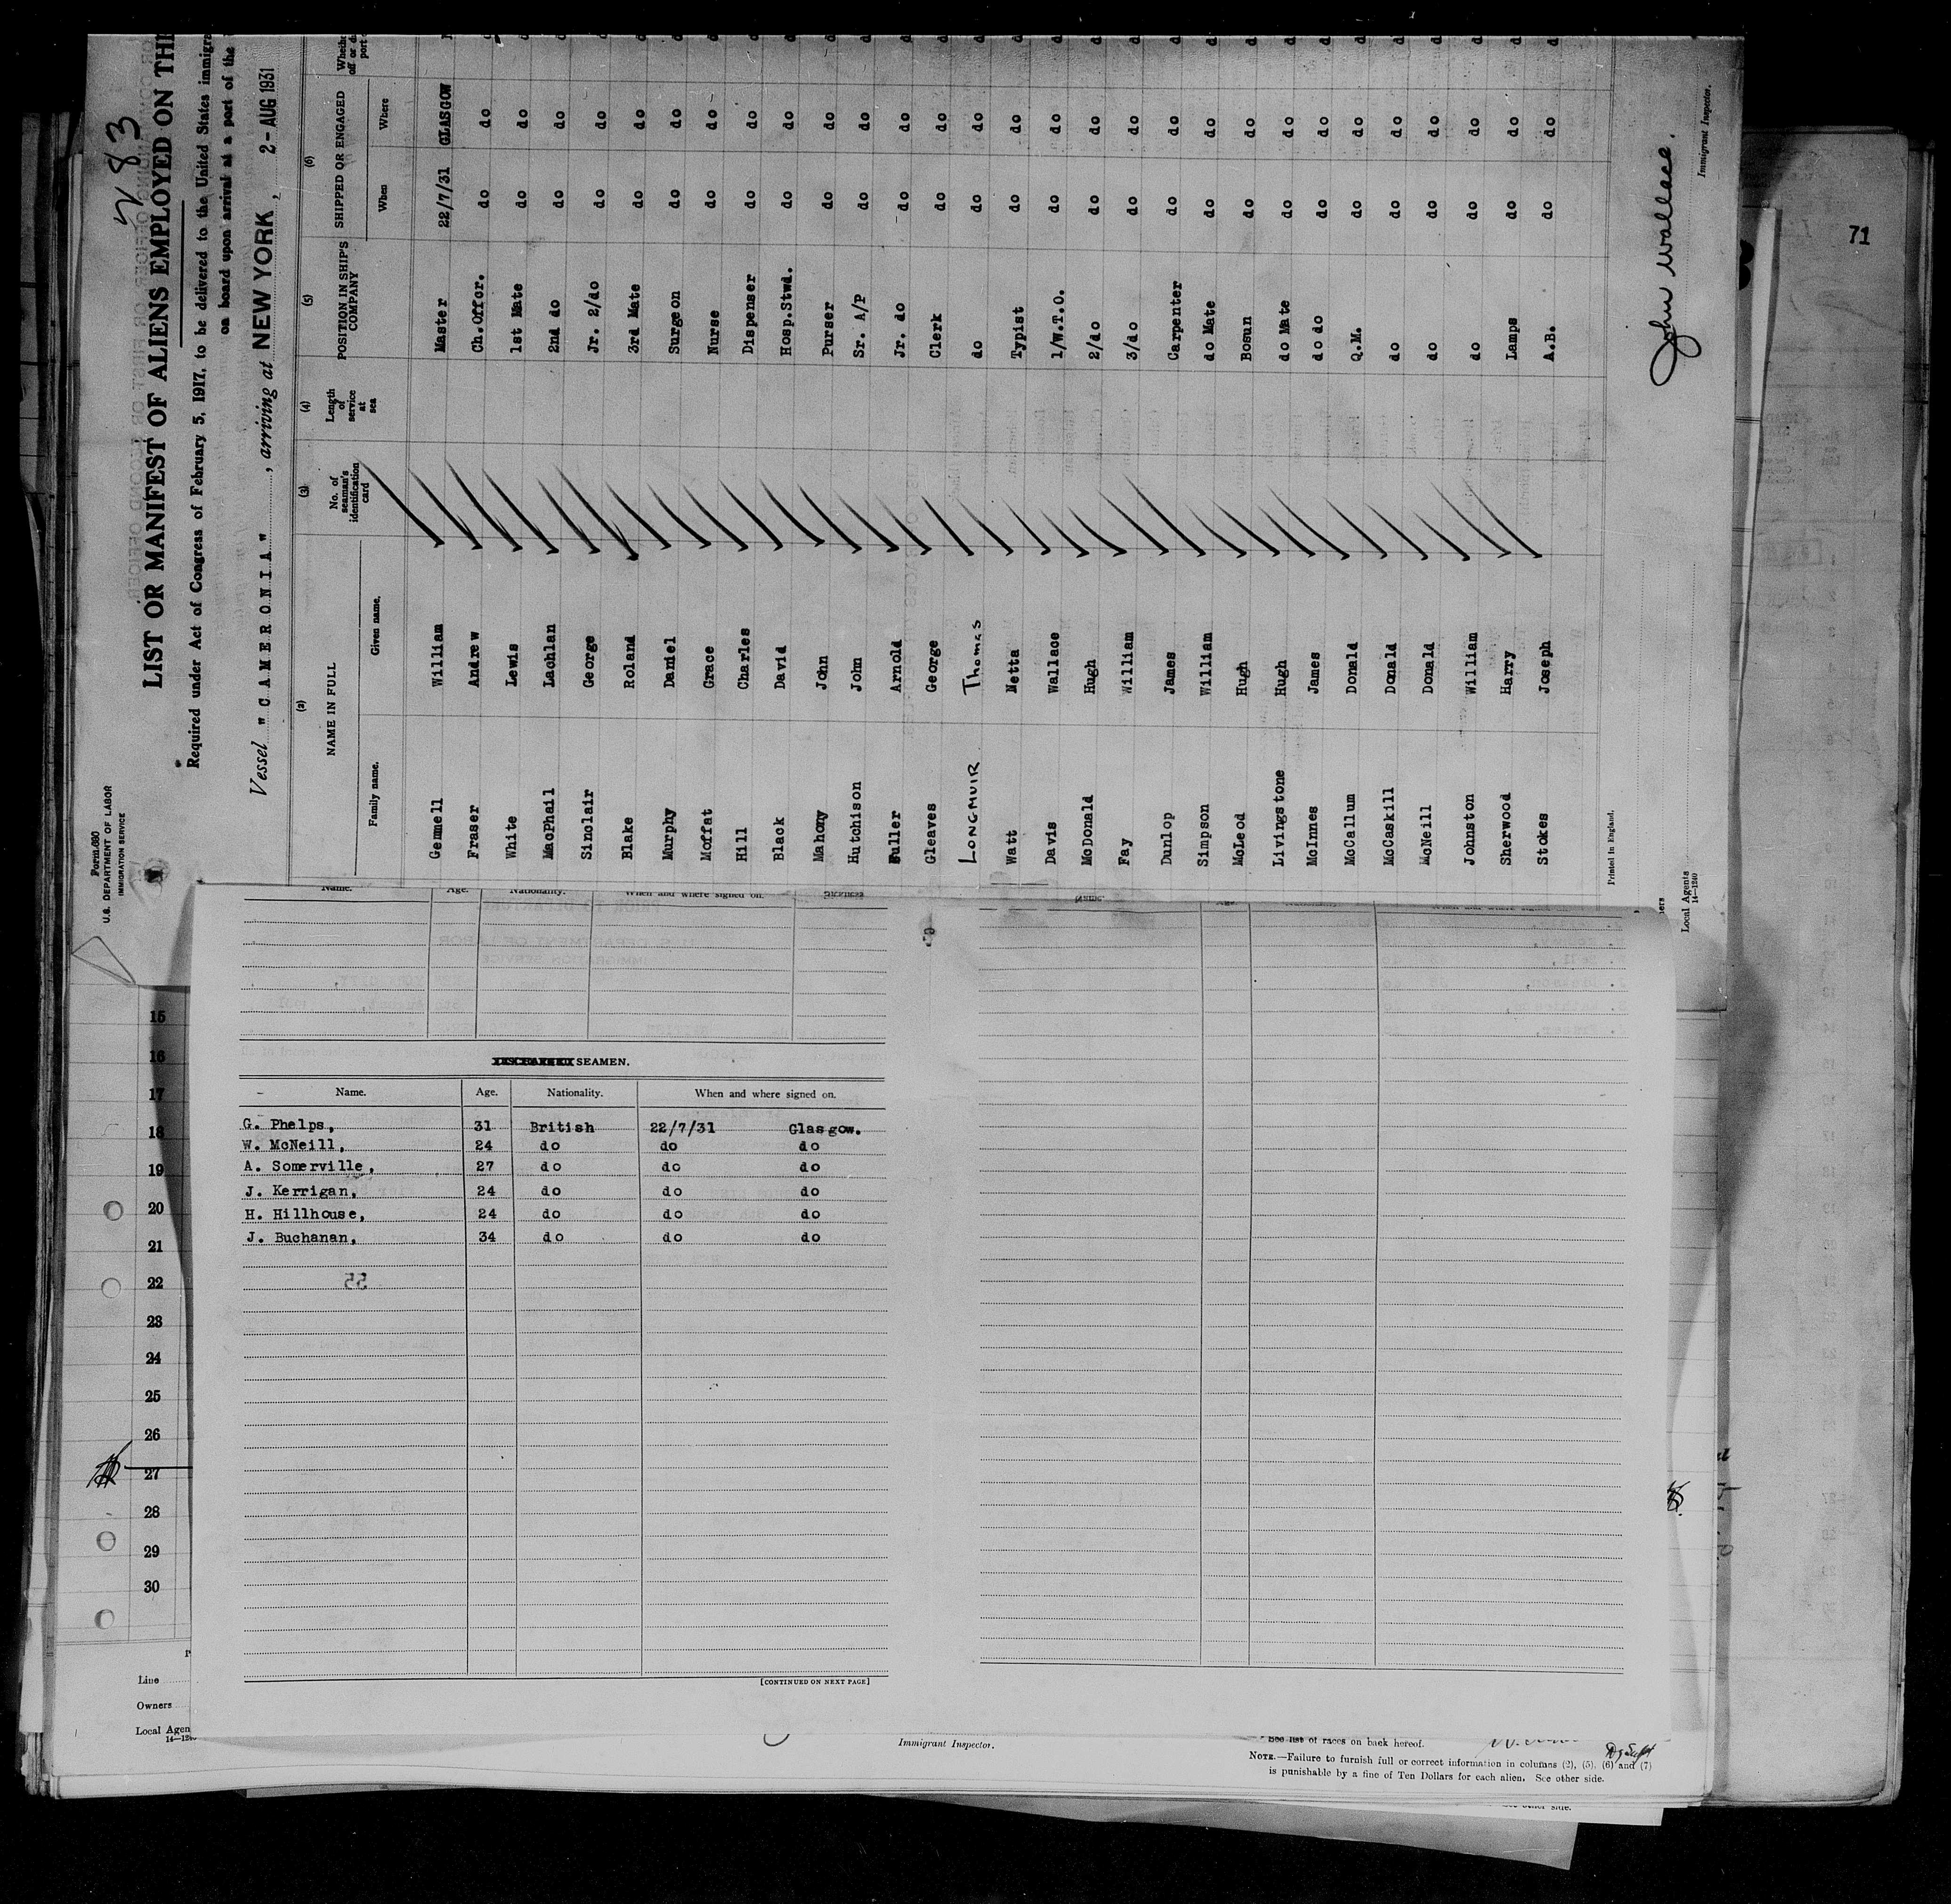 283
LIST OR MANIFEST OF ALIENS EMPLOYED ON THE
Required under Act of Congress of February 5, 1917, to be delivered to the United States immigra
on board upon arrival at a part of the
Form 680
U.S. DEPARTMENT OF LABOR
IMMIGRATION SERVICE
Vessel "CAMERONIA", arriving at NEW YORK, 2 - AUG 1931
(2) (3) (4) (5) (6)
NAME IN FULL No. of seaman's identification card Length of service at sea POSITION IN SHIP'S COMPANY SHIPPED OR ENGAGED
Family name. Given name. When Where
Gemmell William Master 22/7/31 GLASGOW
Fraser Andrew Ch.Offcr. do do
White Lewis 1st Mate do do
MacPhail Lachlan 2nd do do do
Sinclair George Jr. 2/do do do
Blake Roland 3rd Mate do do
Murphy Daniel Surgeon do do
Moffat Grace Nurse do do
Hill Charles Dispenser do do
Black David Hosp.Stwd. do do
Mahony John Purser do do
Hutchison John Sr. A/P do do
Fuller Arnold Jr. do do do
Gleaves George Clerk do do
LONGMUIR Thomas do do do
Watt Netta Typist do do
Davis Wallace 1/W.T.O. do do
McDonald Hugh 2/do do do
Fay William 3/do do do
Dunlop James Carpenter do do
Simpson William do Mate do do
McLeod Hugh Bosun do do
Livingstone Hugh do Mate do do
McInnes James do do do do
McCallum Donald Q.M. do do
McCaskill Donald do do do
McNeill Donald do do do
Johnston William do do do
Sherwood Harry Lamps do do
Stokes Joseph A.B. do do
Printed in England.
John Wallace.
Immigrant Inspector.
Local Agents
14—1240
71
Name. Age. Nationality. When and where signed on.
SEAMEN.
Name. Age. Nationality. When and where signed on.
G. Phelps, 31 British 22/7/31 Glasgow.
W. McNeill, 24 do do do
A. Somerville, 27 do do do
J. Kerrigan, 24 do do do
H. Hillhouse, 24 do do do
J. Buchanan, 34 do do do
55
[CONTINUED ON NEXT PAGE]
15
16
17
18
19
20
21
22
23
24
25
26
27
28
29
30
Line
Owners
Local Agen
Immigrant Inspector.
See list of races on back hereof.
NOTE.—Failure to furnish full or correct information in columns (2), (5), (6) and (7)
is punishable by a fine of Ten Dollars for each alien. See other side.